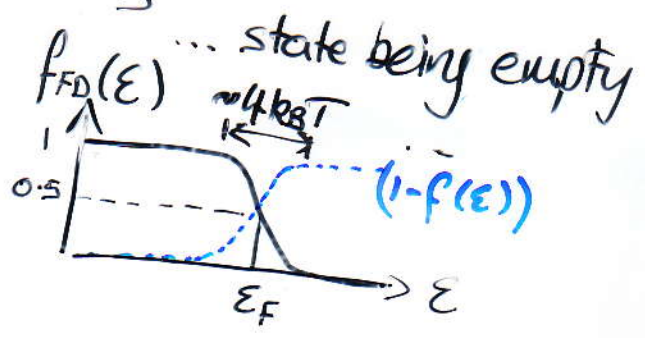 ... state being empty
f_FD(ε)
~4k_BT
1
(1-f(ε))
0.5
ε_F
ε